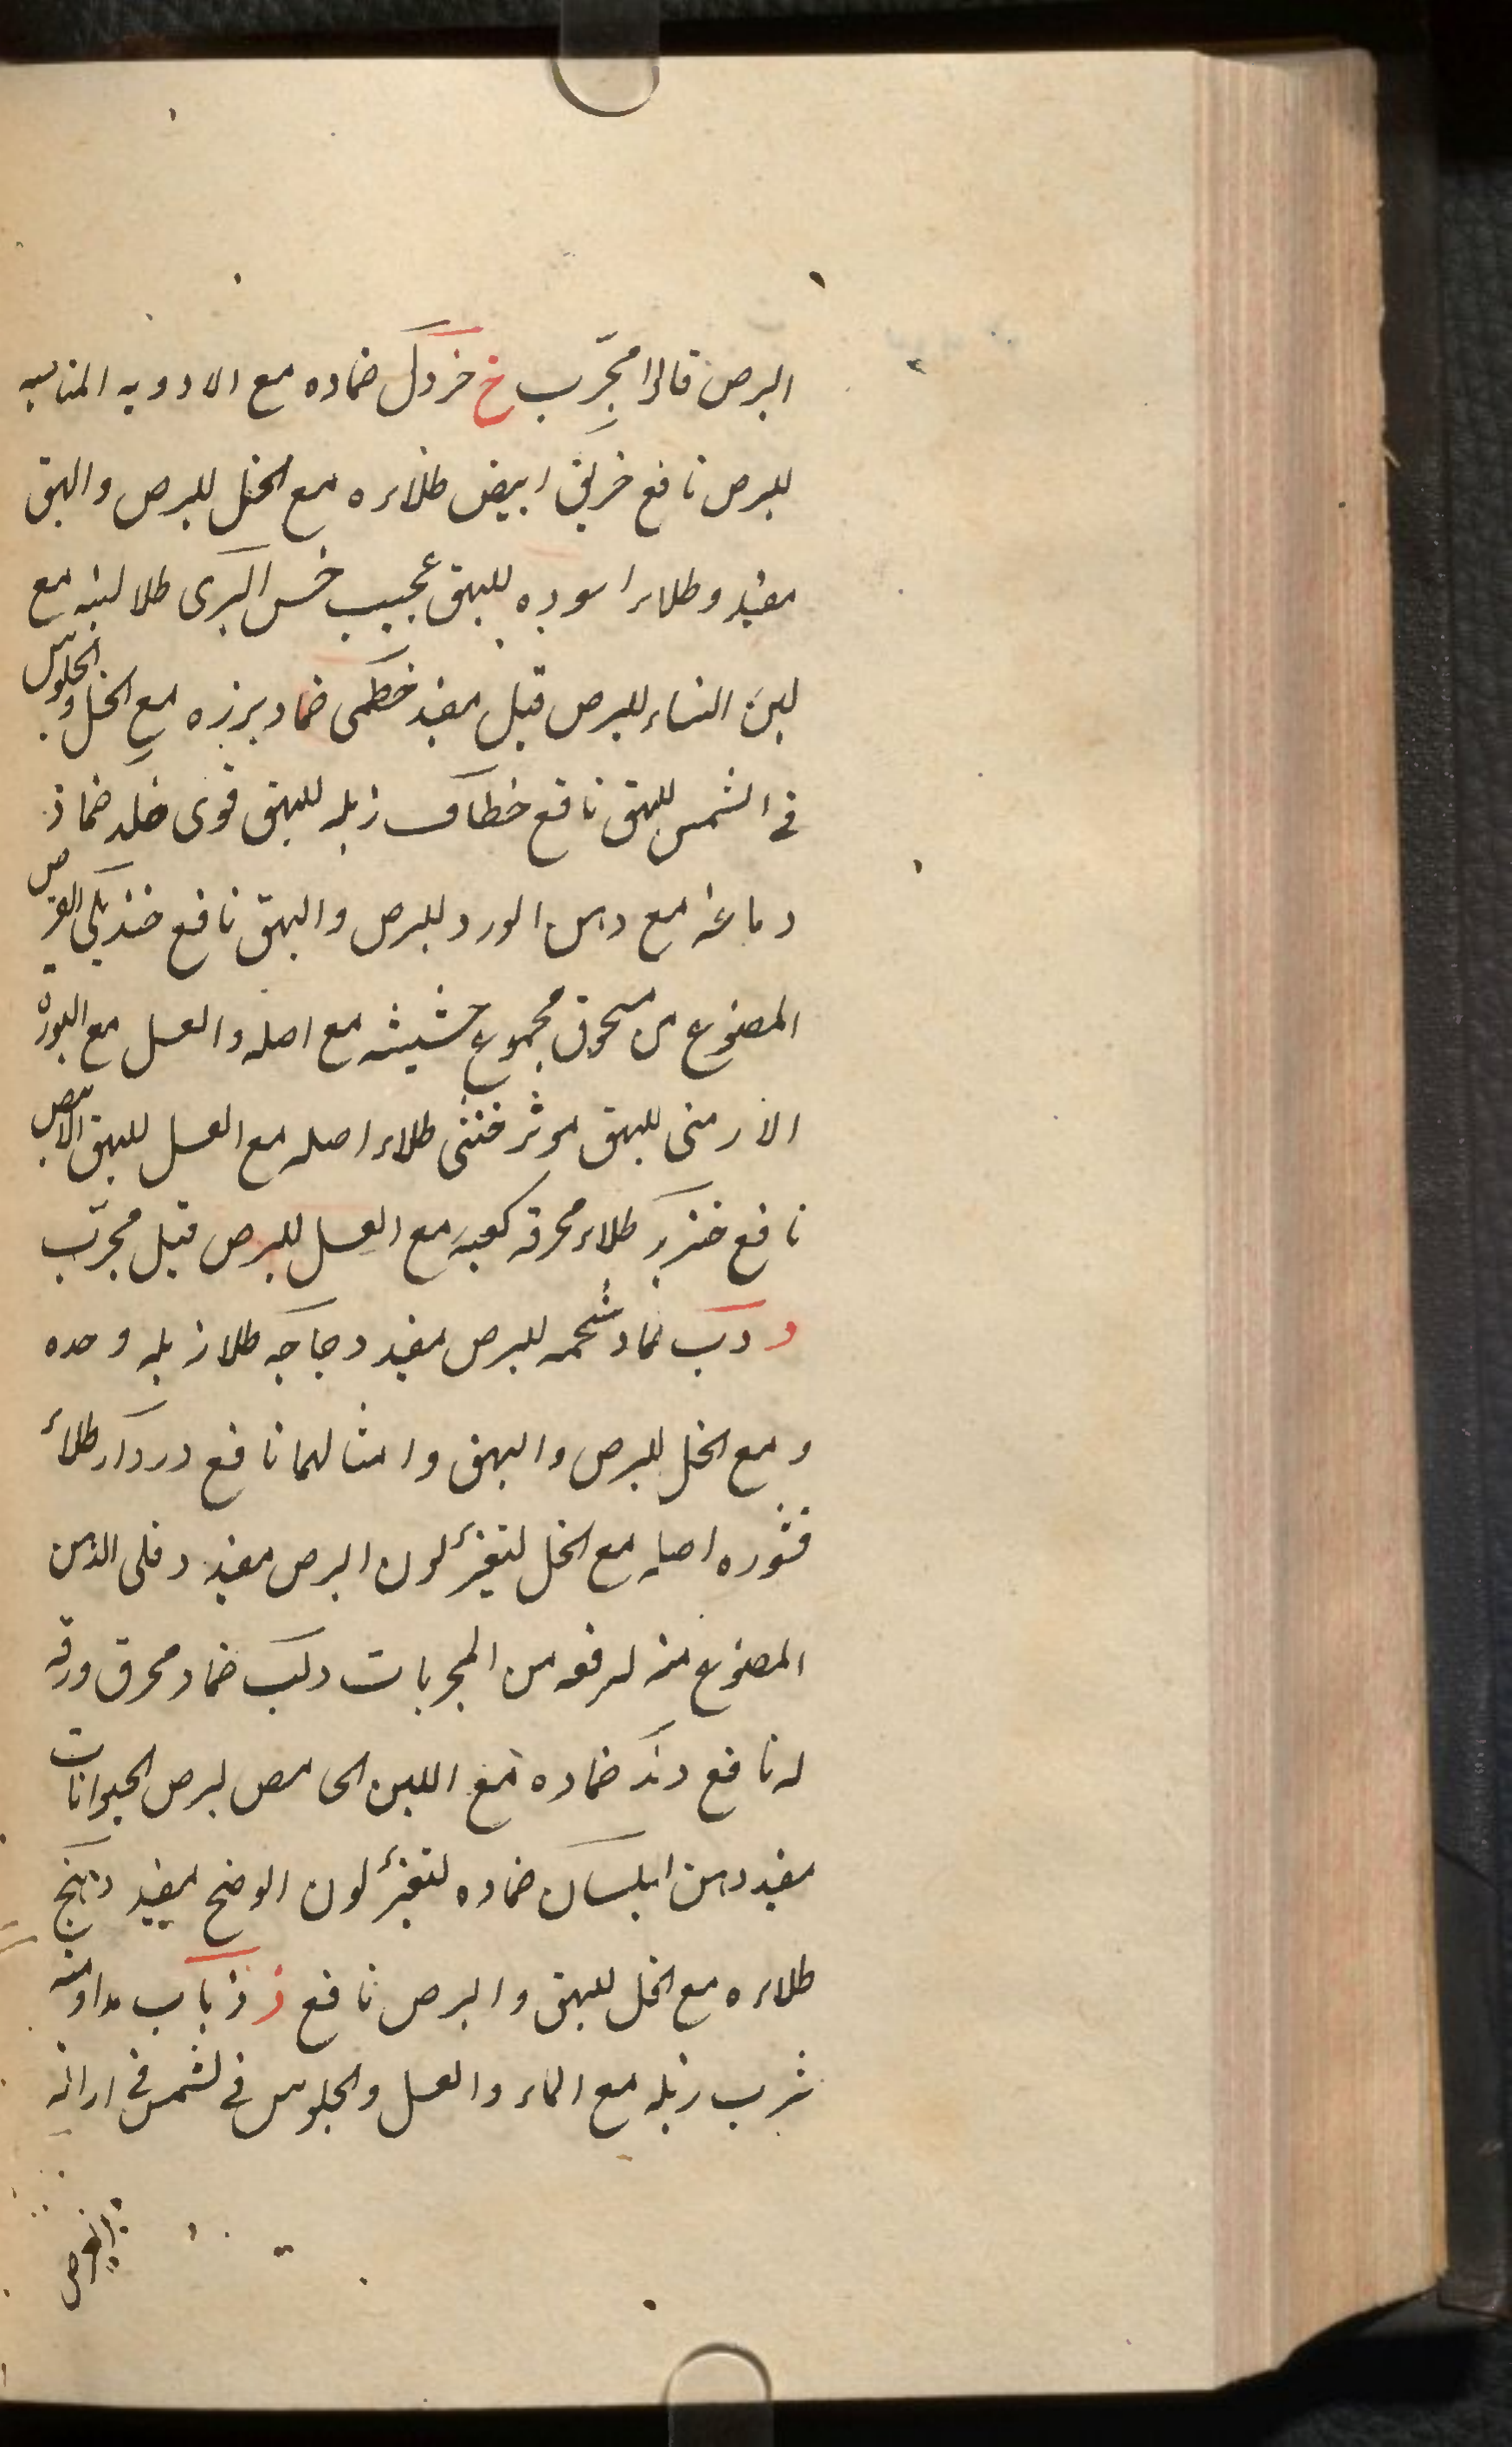 البرص قالوا مجرّب خ خردل ضماده مع الادويه المناسبه
للبرص نافع خربق ابيض طلاءه مع الخل للبرص والبهق
مفيد وطلاء اسوده للبهق عجيب خس البرى طلا لبنه مع
لبن النساء للبرص قيل مفيد خطمى ضماد بزره مع الخل والجلوس
فى الشمس للبهق نافع خطاف زبله للبهق قوى خلد ضماد
دماغه مع دهن الورد للبرص والبهق نافع القرص
المصنوع من مسحوق مجموع حشيشه مع اصله والعسل مع البورق
الارمنى للبهق موثر خنثى طلاء اصله مع العسل للبهق الابيض
نافع خنزير طلاء محرقه كعبه مع العسل للبرص قيل مجرّب
د دب ضماد شحمه للبرص مفيد دجاجه طلا زبله وحده
ومع الخل للبرص والبهق وامثالهما نافع دردار طلاء
قشوره اصله مع الخل لتغير لون البرص مفيد دفلى الدهن
المصنوع منه لرفعه من المجربات دلب ضماد محرق ورقه
له نافع دند ضماده مع اللبن الحامض لبرص الحيوانات
مفيد دهن البلسان ضماده لتغير لون الوضح مفيد دهنج
طلاءه مع الخل للبهق والبرص نافع ذ ذباب مداومة
شرب زبله مع الماء والعسل والجلوس فى الشمس فى ازالة